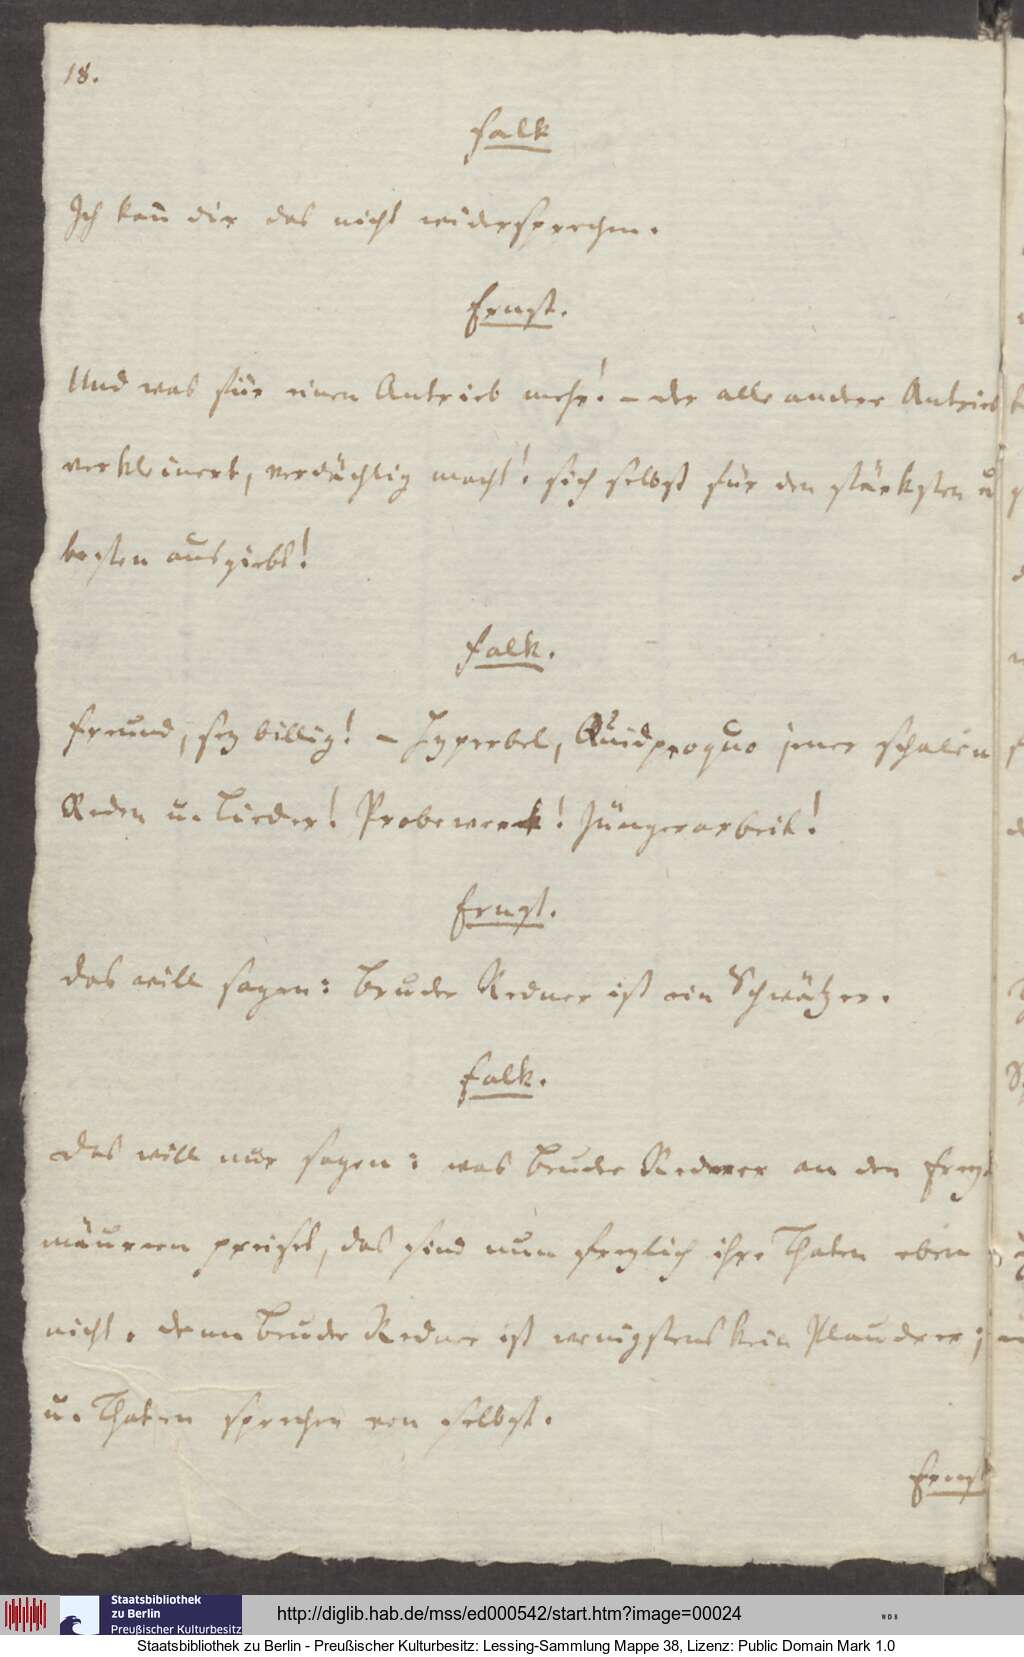 18.
Falk
Ich kan̄ dir das nicht widersprechen.
Ernst.
Und was für einen Antrieb mehr! – der alle andere Antrieb
verkleinert, verdächtig macht! sich selbst für den stärksten u
besten ausgiebt!
Falk.
Freund, sey billig! – Hyperbel, Quidproquo jener schalen
Reden u. Lieder! Probewerk! Jüngerarbeit!
Ernst.
Das will sagen: Bruder Redner ist ein Schwätzer.
Falk.
Das will nur sagen: was Bruder Redner an den Frey-
mäurern preiset, das sind nun freylich ihre Thaten eben
nicht. Denn Bruder Redner ist wenigstens kein Plauderer;
u. Thaten sprechen von selbst.
Ernst
Staatsbibliothek
zu Berlin
Preußischer Kulturbesitz
http://diglib.hab.de/mss/ed000542/start.htm?image=00024
WDB
Staatsbibliothek zu Berlin - Preußischer Kulturbesitz: Lessing-Sammlung Mappe 38, Lizenz: Public Domain Mark 1.0